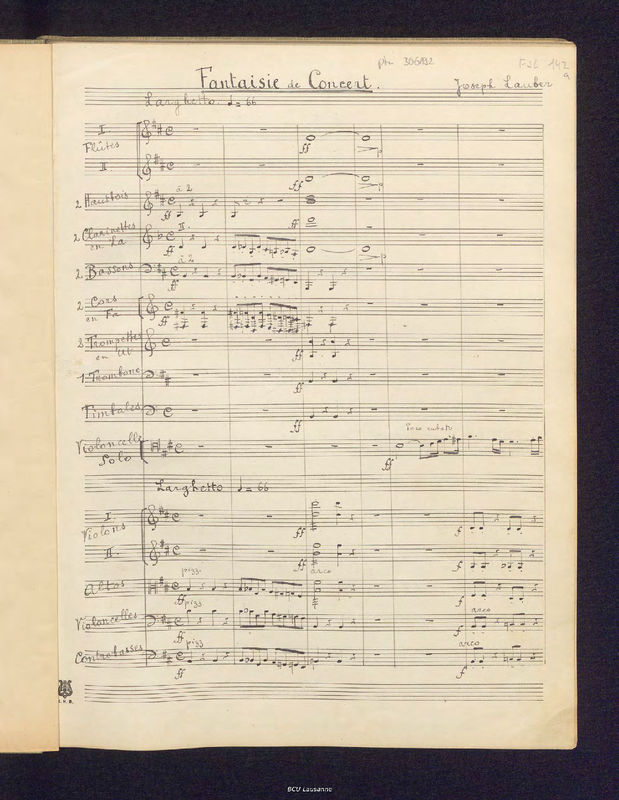 Fantaisie de Concert.
Joseph Lauber
Larghetto. ♩= 66
I
Flûtes
ff
p
II
ff
p
2 Hautbois
à 2
ff
ff
2 Clarinettes
en La
II.
ff
p
2 Bassons
à 2
ff
2 Cors
en Fa
ff
Trompettes
en Ut
ff
1 Trombone
ff
Timbales
ff
Violoncelle
Solo
ff
Larghetto ♩= 66
I
Violons
ff
f
II.
ff
f
Altos
pizz
arco
ff
f
Violoncelles
pizz
arco
ff
f
Contrebasses
pizz
arco
ff
f
BCU Lausanne